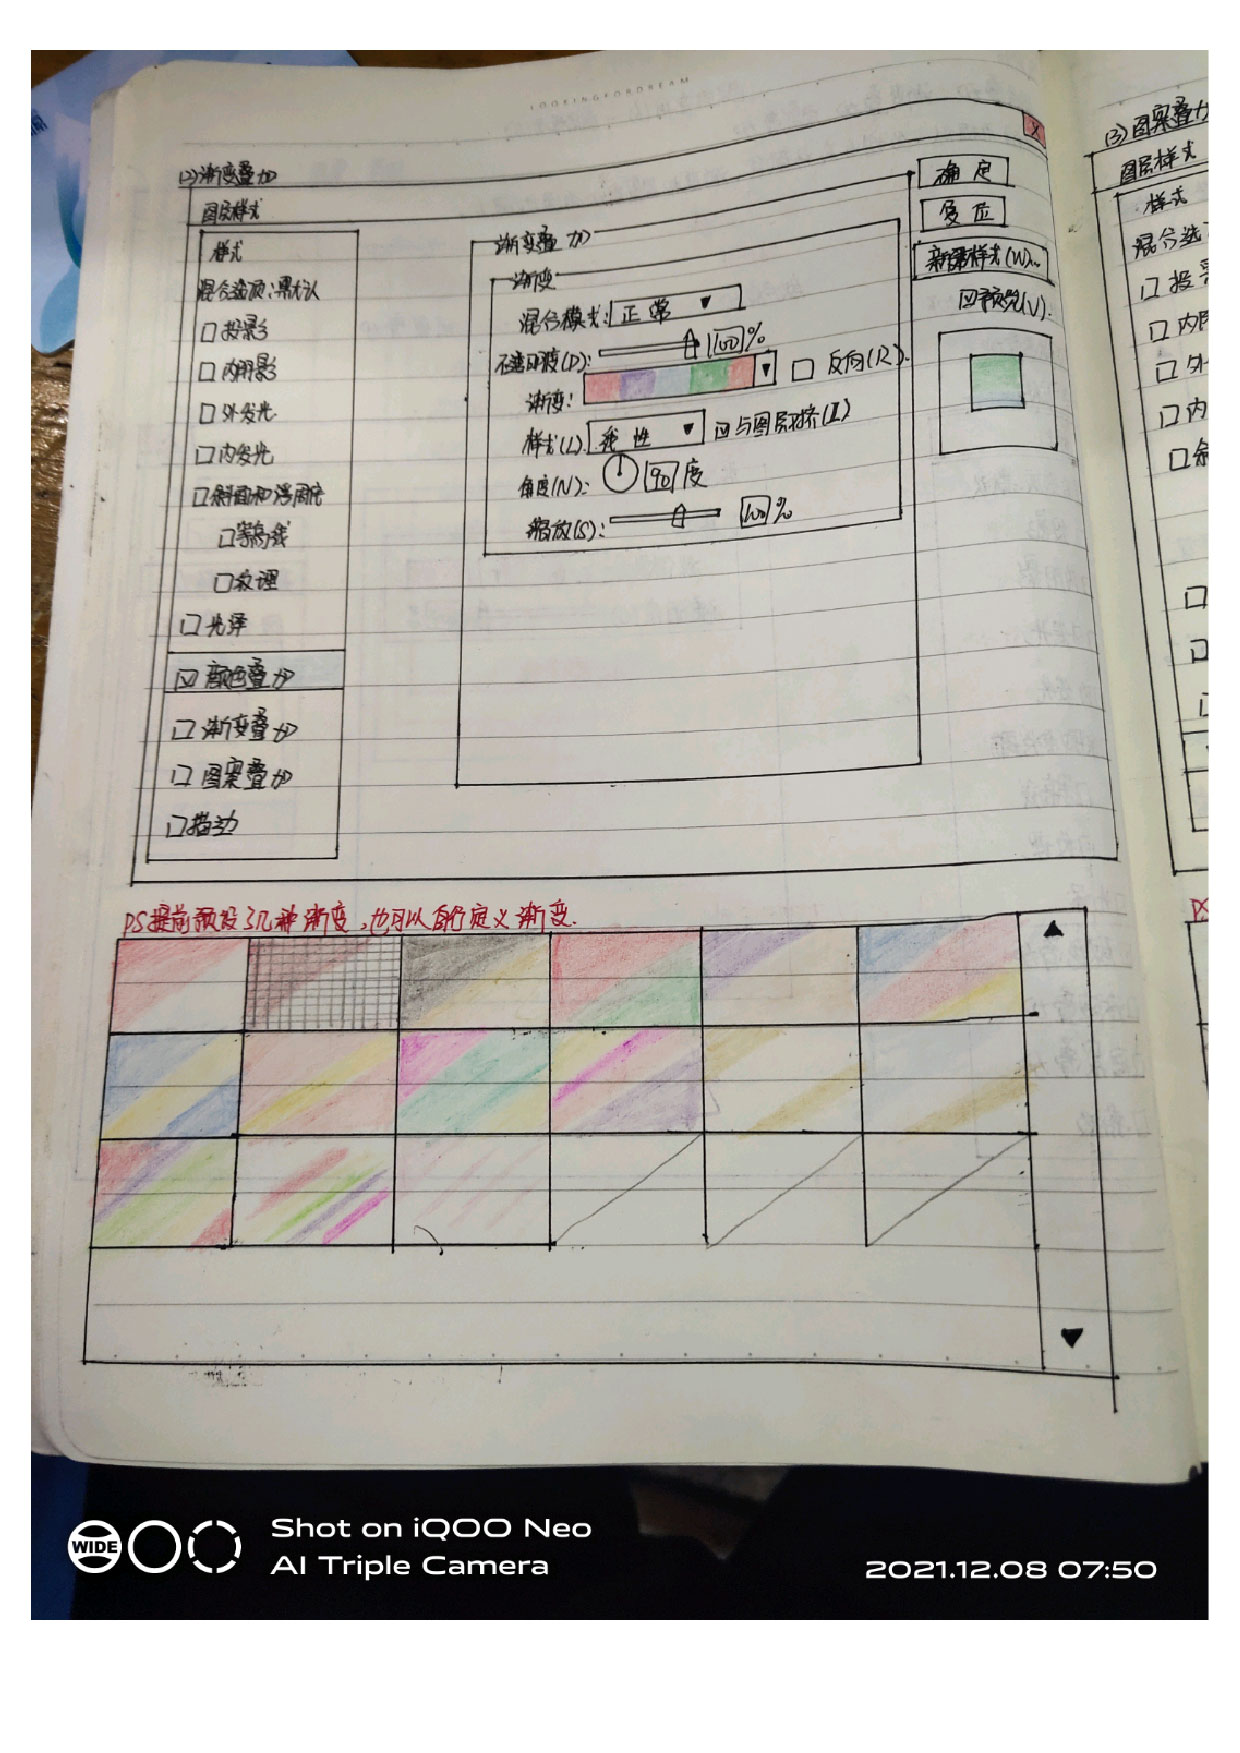 LOOKING FOR DREAM
(2)渐变叠加
图层样式
样式
混合选项:默认
□投影
□内阴影
□外发光
□内发光
□斜面和浮雕
□等高线
□纹理
□光泽
☑颜色叠加
□渐变叠加
□图案叠加
□描边
渐变叠加
渐变
混合模式: 正常 ▼
不透明度(P): 100 %
渐变: ▼ □ 反向(R)
样式(L): 线性 ▼ ☑与图层对齐(I)
角度(N): 90 度
缩放(S): 100 %
X
确定
复位
新建样式(W)...
☑预览(V)
PS提前预设了几种渐变,也可以自行定义渐变.
▲
▼
(3)图案叠加
图层样式
样式
混合选
□投影
□内阴
□外
□内
□斜
PS
WIDE
Shot on iQOO Neo
AI Triple Camera
2021.12.08 07:50